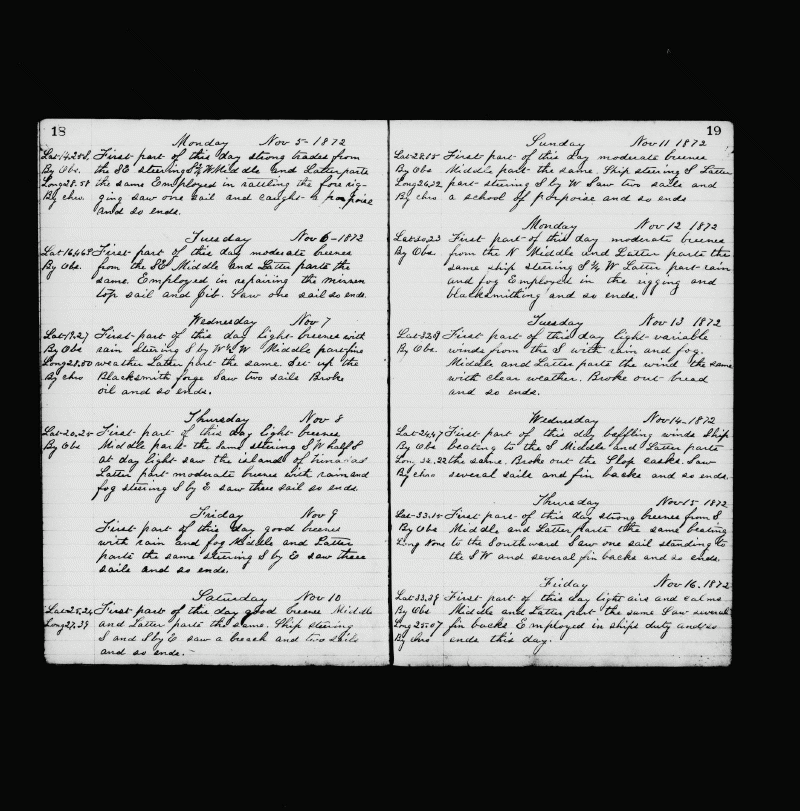 18
Monday Nov 5-1872
Lat 14.25 S. First part of this day strong trades from
By Obs. the SE steering S½W Middle and Latter parts
Long 28.58 the same Employed in ratling the fore rig-
By chro. ging saw one sail and caught a porpoise
and so ends.
Tuesday Nov 6-1872
Lat 16.46 First part of this day moderate breezes
By Obs. from the SE Middle and Latter parts the
same. Employed in repairing the mizzen
top sail and jib. Saw one sail so ends.
Wednesday Nov 7
Lat-19.27 First-part of this day light-breezes with
By Obs rain Steering S by W½W Middle part fine
Long 28.50 weather Latter part-the same. Set up the
By chro Blacksmith forge Saw two sails Broke
oil and so ends.
Thursday Nov 8
Lat-20.25 First part of this day light breezes
By Obs Middle part the same steering S W half S
at day light saw the island of
Latter part moderate breeze with rain and
fog steering S by E saw three sail so ends
Friday Nov 9
First part of this day good breeze
with rain and fog Middle and Latter
parts the same steering S by E saw three
sails and so ends.
Saturday Nov 10
Lat-25.24 First part of this day good breeze Middle
Long 27.39 and Latter parts the same. Ship steering
S and S by E saw a breach and two sails
and so ends.-
19
Sunday Nov 11 1872
Lat-28.15 First part of this day moderate breeze
By Obs Middle part the same. Ship steering S Latter
Long 26.32 part steering S by W Saw two sails and
By chro a school of porpoise and so ends
Monday Nov 12 1872
Lat 30.23 First part-of this day moderate breezes
By Obs. from the N Middle and Latter parts the
same ship steering S ¼ W Latter part rain
and fog Employed in the rigging and
blacksmithing and so ends.
Tuesday Nov 13 1872
Lat-32.8 First part of this day light variable
By Obs. winds from the S with rain and fog.
Middle and Latter parts the wind the same
with clear weather. Broke out-bread
and so ends.
Wednesday Nov 14-1872
First part of this day baffling winds Ship
By Obs beating to the S Middle and Latter parts
the same. Broke out the Slop casks. Saw
By chro several sails and fin backs and so ends.
Thursday Nov 15 1872
Lat-33.15 First part of this day strong breezes from S
By Obs Middle and Latter parts the same beating
Long None to the Southward Saw one sail standing to
the S W and several fin backs and so ends.
Friday Nov 16.1872
Lat 33.39 First part of this day light airs and calms
By Obs Middle and Latter part the same Saw several
Long 25.07 fin backs Employed in ships duty and so
By chro ends this day.